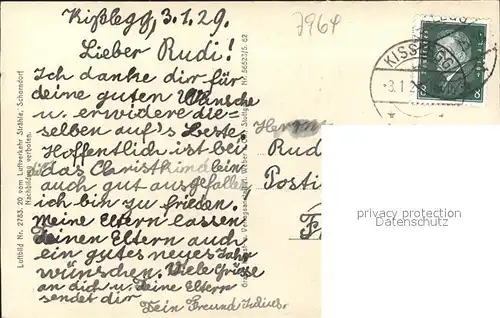 Kißlegg, 3.1.29.
7964
Lieber Rudi!
Ich danke dir für
deine guten Wünsche
u. erwidere die=
selben auf's Beste.
Hoffentlich ist bei
dir das Christkindlein
auch gut ausgefallen
ich bin zu frieden.
Meine Eltern lassen
Deinen Eltern auch
ein gutes neues Jahr
wünschen. Viele Grüsse
an dich u. deine Eltern
sendet dir
Dein Freund Julius.
Herrn
Rud
Posti
KISSLEGG
3.1.2
8 8
Luftbild Nr. 2783. 20 vom Luftverkehr Strähle, Schorndorf
Nachbildung verboten.
privacy protection
Datenschutz